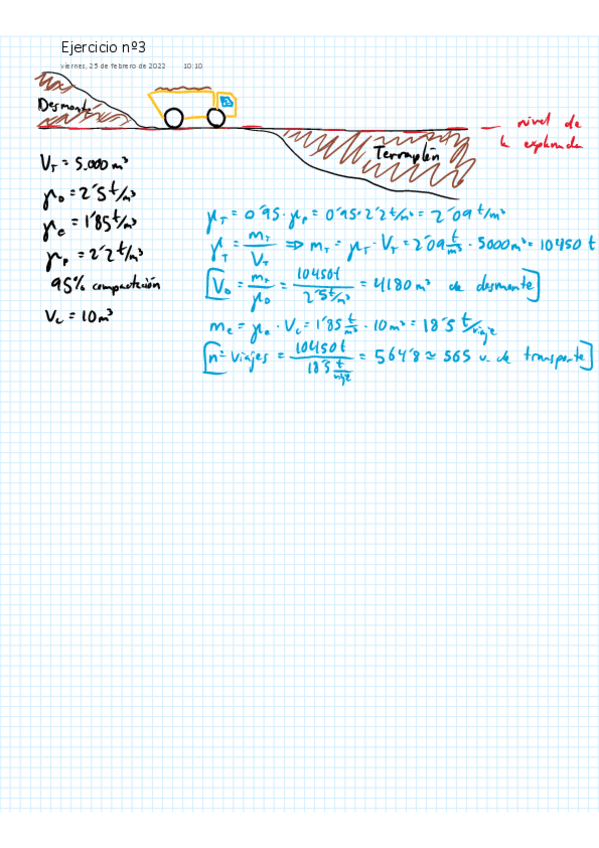 Ejercicio nº3
viernes, 25 de febrero de 2022 10:10
Desmonte
nivel de
la explanada
Terraplén
V_T = 5.000 m³
γ_0 = 2´5 t/m³
γ_e = 1´85 t/m³
γ_p = 2´2 t/m³
95% compactación
V_c = 10 m³
γ_T = 0´95 · γ_p = 0´95 · 2´2 t/m³ = 2´09 t/m³
γ_T = m_T / V_T ⇒ m_T = γ_T · V_T = 2´09 t/m³ · 5000 m³ = 10450 t
[V_0 = m_T / γ_0 = 10450 t / 2´5 t/m³ = 4180 m³ de desmonte]
m_c = γ_e · V_c = 1´85 t/m³ · 10 m³ = 18´5 t/viaje
[nº viajes = 10450 t / 18´5 t/viaje = 564´8 ≃ 565 v. de transporte]